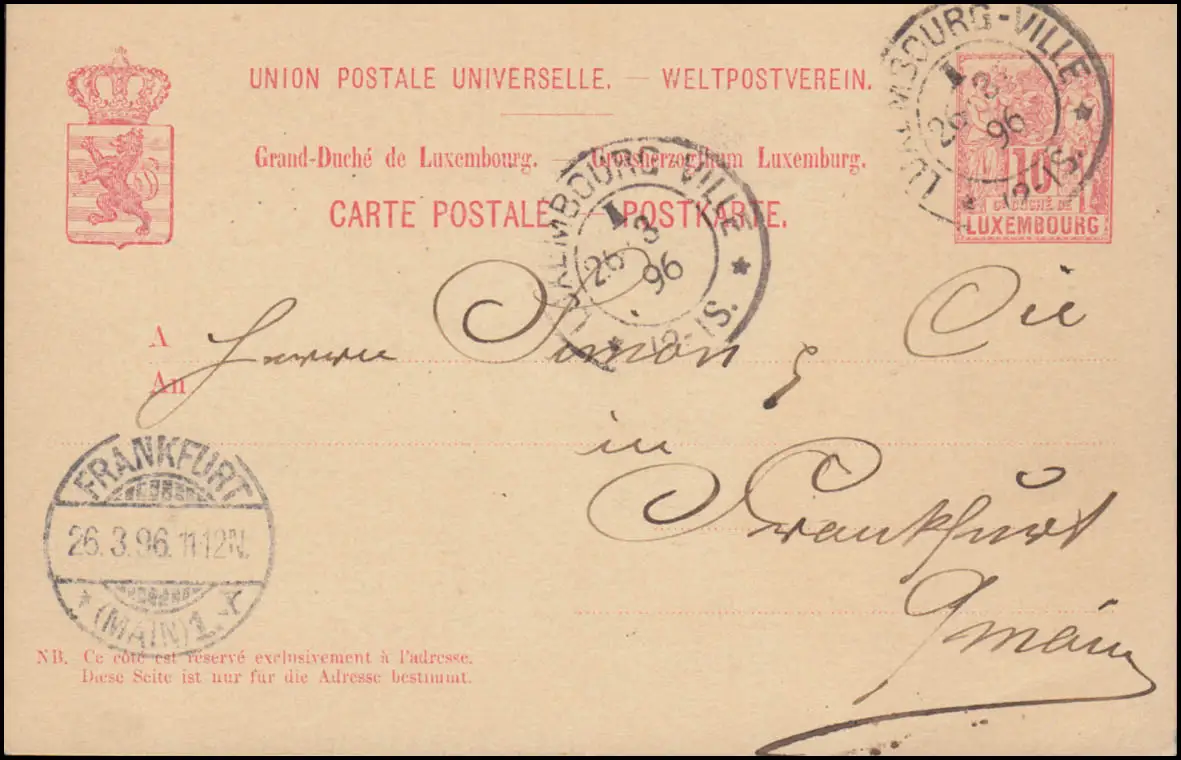 UNION POSTALE UNIVERSELLE. — WELTPOSTVEREIN.
Grand-Duché de Luxembourg. — Grossherzogthum Luxemburg.
CARTE POSTALE — POSTKARTE.
10
Gd DUCHÉ DE
LUXEMBOURG
LUXEMBOURG-VILLE
1
26 3
96
* 12-1S. *
LUXEMBOURG-VILLE
1
26 3
96
* 12-1S. *
A
An
Herrn Simon & Cie
in
Frankfurt
a/main
FRANKFURT
26.3.96. 11-12N.
* (MAIN) 1. *
NB. Ce côté est réservé exclusivement à l'adresse.
Diese Seite ist nur für die Adresse bestimmt.